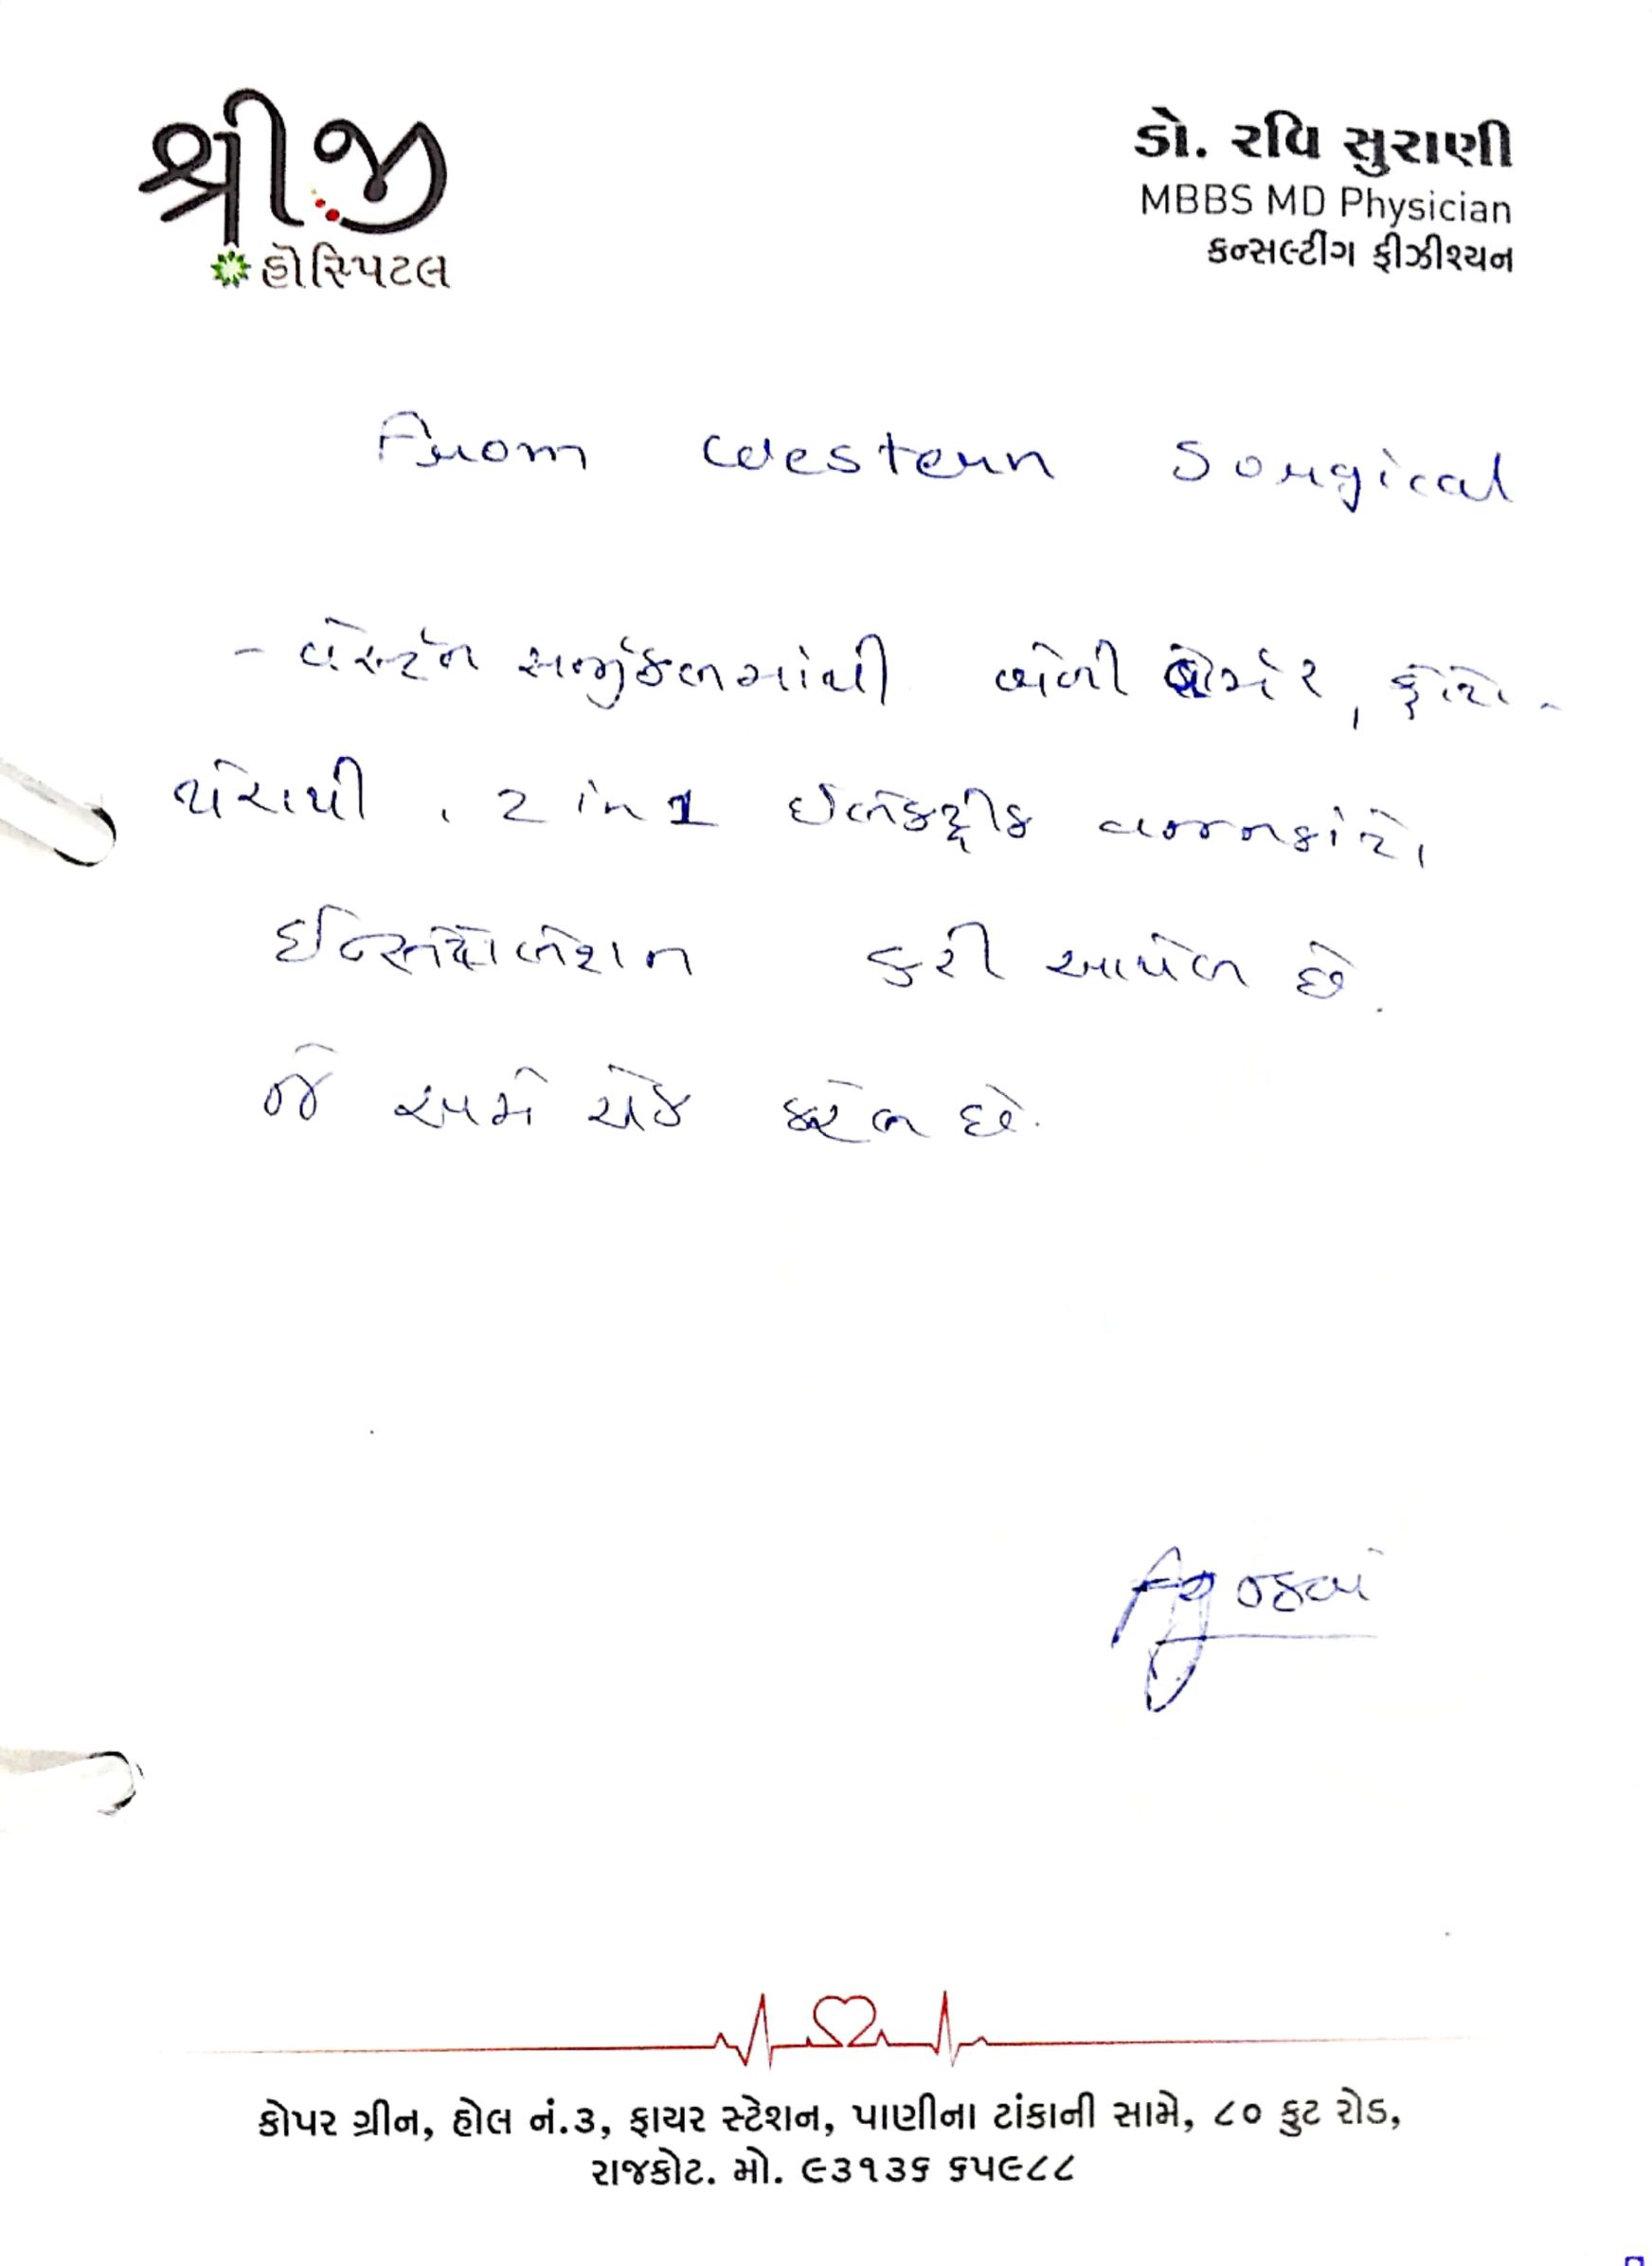 શ્રીજી
હોસ્પિટલ
ડો. રવિ સુરાણી
MBBS MD Physician
કન્સલ્ટીંગ ફીઝીશ્યન
From Western Sorgical
- વેસ્ટર્ન સર્જીકલમાંથી બેબી વોર્મર, ફોટો-
થેરાપી, 2 in 1 ઈલેકટ્રીક વજનકાંટો
ઈન્સ્ટોલેશન કરી આપેલ છે.
જે અમે ચેક કરેલ છે.
કોપર ગ્રીન, હોલ નં.૩, ફાયર સ્ટેશન, પાણીના ટાંકાની સામે, ૮૦ ફુટ રોડ,
રાજકોટ. મો. ૯૩૧૩૬ ૬૫૯૮૮